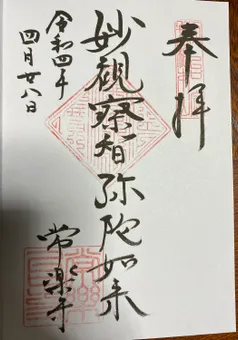 奉拝
妙観察智弥陀如来
令和四年
四月廿八日
常楽寺